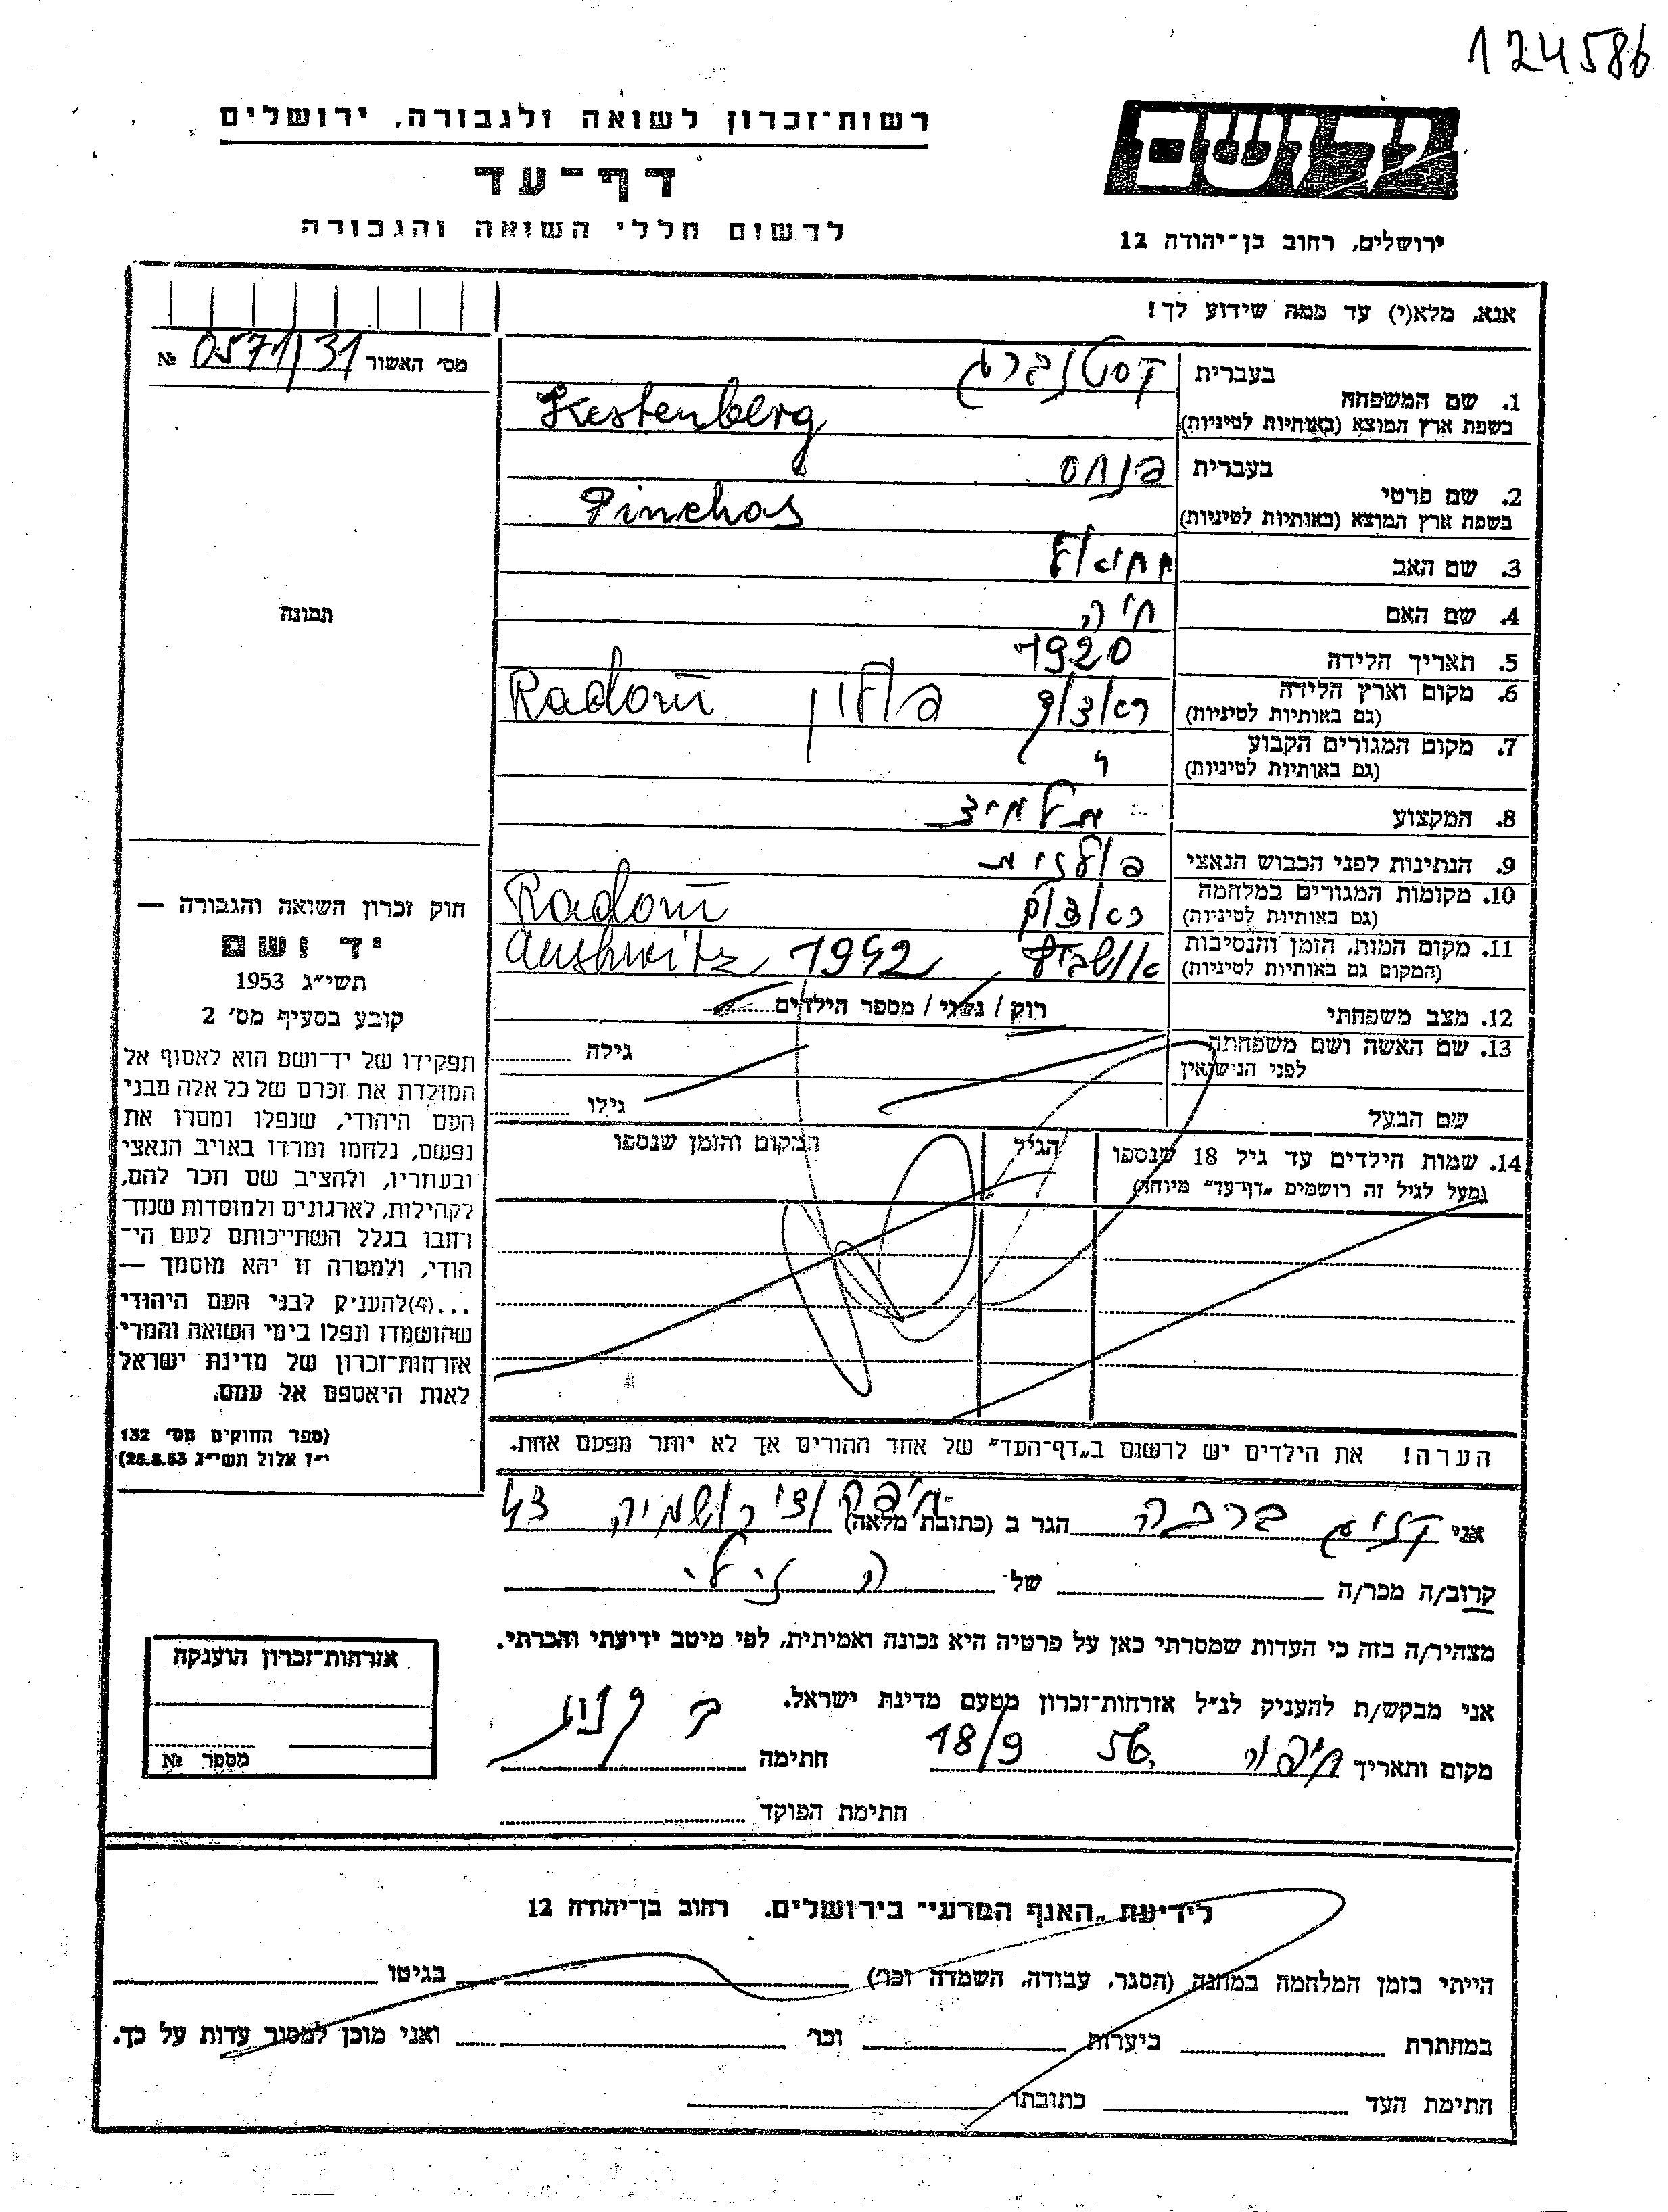 124586
רשות־זכרון לשואה ולגבורה, ירושלים
יד ושם
דף־עד
לרשום חללי השואה והגבורה
ירושלים, רחוב בן־יהודה 12
אנא, מלא(י) עד כמה שידוע לך!
מס׳ האשור № 0571/31
תמונה
1. שם המשפחה בעברית קסטנברג
בשפת ארץ המוצא (באותיות לטיניות) Kestenberg
2. שם פרטי בעברית פנחס
בשפת ארץ המוצא (באותיות לטיניות) Pinchas
3. שם האב
4. שם האם חיה
5. תאריך הלידה 1920
6. מקום וארץ הלידה פולין Radom
(גם באותיות לטיניות)
7. מקום המגורים הקבוע
(גם באותיות לטיניות)
8. המקצוע תלמיד
9. הנתינות לפני הכבוש הנאצי פולנית
10. מקומות המגורים במלחמה Radom
(גם באותיות לטיניות)
11. מקום המות, הזמן והנסיבות 1942 Aushwitz
(המקום גם באותיות לטיניות)
12. מצב משפחתי רוק / נשוי / מספר הילדים
13. שם האשה ושם משפחתה גילה
לפני הנישואין
שם הבעל גילו
14. שמות הילדים עד גיל 18 שנספו הגיל המקום והזמן שנספו
(מעל לגיל זה רושמים „דף־עד” מיוחד)
הערה! את הילדים יש לרשום ב„דף־העד” של אחד ההורים אך לא יותר מפעם אחת.
חוק זכרון השואה והגבורה —
יד ושם
תשי״ג 1953
קובע בסעיף מס׳ 2
תפקידו של יד־ושם הוא לאסוף אל
המולדת את זכרם של כל אלה מבני
העם היהודי, שנפלו ומסרו את
נפשם, נלחמו ומרדו באויב הנאצי
ובעוזריו, ולהציב שם וזכר להם,
לקהילות, לארגונים ולמוסדות שנח־
רחבו בגלל השתייכותם לעם הי־
הודי, ולמטרה זו יהא מוסמך —
...(4)להעניק לבני העם היהודי
שהושמדו ונפלו בימי השואה והמרי
אזרחות־זכרון של מדינת ישראל
לאות היאספם אל עמם.
(ספר החוקים מס׳ 132
י״ז אלול תשי״ג 28.8.53)
אני ברכה הגר ב (כתובת מלאה) חיפה ואדי רושמיה 43
קרוב/ה מכר/ה של הנ״ל
מצהיר/ה בזה כי העדות שמסרתי כאן על פרטיה היא נכונה ואמיתית, לפי מיטב ידיעתי והכרתי.
אני מבקש/ת להעניק לנ״ל אזרחות־זכרון מטעם מדינת ישראל.
מקום ותאריך חיפה, 56 18/9 חתימה
חתימת הפוקד
אזרחות־זכרון הוענקה
מספר №
לידיעת „האגף המדעי” בירושלים. רחוב בן־יהודה 12
הייתי בזמן המלחמה במחנה (הסגר, עבודה, השמדה וכו׳) בגיטו
במחתרת ביערות וכו׳ ואני מוכן למסור עדות על כך.
חתימת העד כתובתו